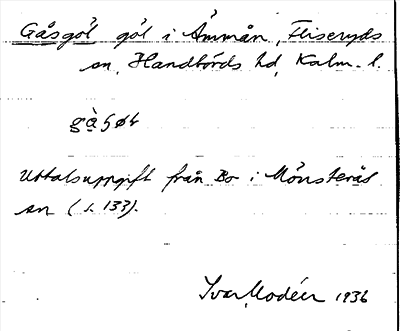 Gåsgöl göl i Åmmån, Fliseryds
sn, Handbörds hd, Kalm. l.
Uttalsuppgift från Bo i Mönsterås
sn (s. 133).
Ivar Modéer 1936